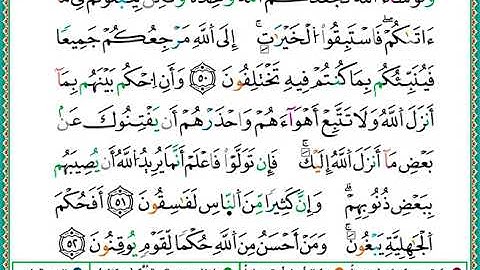 ءَاتَىٰكُمْ ۖ فَٱسْتَبِقُوا۟ ٱلْخَيْرَٰتِ ۚ إِلَى ٱللَّهِ مَرْجِعُكُمْ جَمِيعًا
فَيُنَبِّئُكُم بِمَا كُنتُمْ فِيهِ تَخْتَلِفُونَ ٥٠ وَأَنِ ٱحْكُم بَيْنَهُم بِمَآ
أَنزَلَ ٱللَّهُ وَلَا تَتَّبِعْ أَهْوَآءَهُمْ وَٱحْذَرْهُمْ أَن يَفْتِنُوكَ عَنۢ
بَعْضِ مَآ أَنزَلَ ٱللَّهُ إِلَيْكَ ۖ فَإِن تَوَلَّوْا۟ فَٱعْلَمْ أَنَّمَا يُرِيدُ ٱللَّهُ أَن يُصِيبَهُم
بِبَعْضِ ذُنُوبِهِمْ ۗ وَإِنَّ كَثِيرًا مِّنَ ٱلنَّاسِ لَفَٰسِقُونَ ٥١ أَفَحُكْمَ
ٱلْجَٰهِلِيَّةِ يَبْغُونَ ۚ وَمَنْ أَحْسَنُ مِنَ ٱللَّهِ حُكْمًا لِّقَوْمٍ يُوقِنُونَ ٥٢